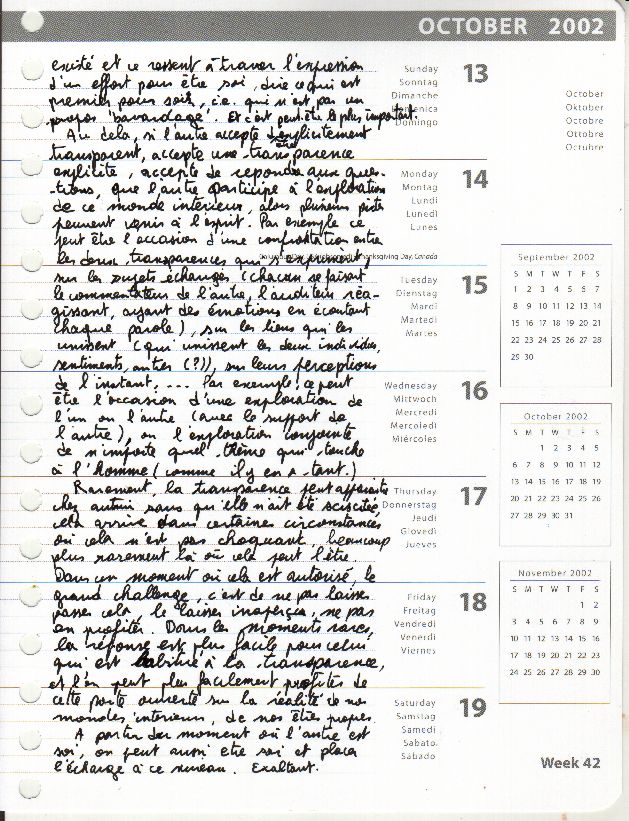 OCTOBER 2002
existé et ce ressent à traver l'expression
d'un effort pour être soi, dire ce qui est
premier pour soi, i.e. qui n'est pas un
"bavardage". Et c'est peut-être le plus important.
Au delà, si l'autre accepte d'
transparent, accepte une transparence
explicite, accepte de repondre aux ques-
-tions, que l'autre participe à l'exploration
de ce monde interieur, alors plusieurs
peuvent venir à l'esprit. Par exemple ce
peut être l'occasion d'une confrontation entre
les deux transparences qui s'expriment,
sur les sujets échangés (chacun se faisant
le commentateur de l'autre, l'auditeur réa-
gissant, ayant des émotions en écoutant
chaque parole), sur les liens qui les
unissent (qui unissent les deux individus,
sentiments, autres (?)), sur leurs perceptions
de l'instant, ... Par exemple, ce peut
être l'occasion d'une exploration de
l'un ou l'autre (avec le support de
l'autre), ou l'exploration conjointe
de n'importe quel thème qui touche
à l'Homme (comme il y en a tant.)
Rarement, la transparence peut apparaitre
chez autrui sans qu'elle n'ait été suscitée,
cela arrive dans certaines circonstances
où cela n'est pas choquant, beaucoup
plus rarement là où cela peut l'être.
Dans un moment où cela est autorisé, le
grand challenge, c'est de ne pas laisser
passer cela, le laisser inaperçu, ne pas
en profiter. Dans les moments rares,
la réponse est plus facile pour celui
qui est habitué à la transparence,
et l'on peut plus facilement profiter de
cette porte ouverte sur la réalité de nos
mondes interieurs, de nos êtres propres.
A partir du moment où l'autre est
soi, on peut aussi etre soi et placer
l'échange à ce niveau. Exaltant.
Sunday 13
Sonntag
Dimanche
Domenica
Domingo
October
Oktober
Octobre
Ottobre
Octubre
Monday 14
Montag
Lundi
Lunedì
Lunes
Thanksgiving Day, Canada
Tuesday 15
Dienstag
Mardi
Martedì
Martes
Wednesday 16
Mittwoch
Mercredi
Mercoledì
Miércoles
Thursday 17
Donnerstag
Jeudi
Giovedì
Jueves
Friday 18
Freitag
Vendredi
Venerdì
Viernes
Saturday 19
Samstag
Samedi
Sabato
Sábado
September 2002
S M T W T F S
1 2 3 4 5 6 7
8 9 10 11 12 13 14
15 16 17 18 19 20 21
22 23 24 25 26 27 28
29 30
October 2002
S M T W T F S
1 2 3 4 5
6 7 8 9 10 11 12
13 14 15 16 17 18 19
20 21 22 23 24 25 26
27 28 29 30 31
November 2002
S M T W T F S
1 2
3 4 5 6 7 8 9
10 11 12 13 14 15 16
17 18 19 20 21 22 23
24 25 26 27 28 29 30
Week 42